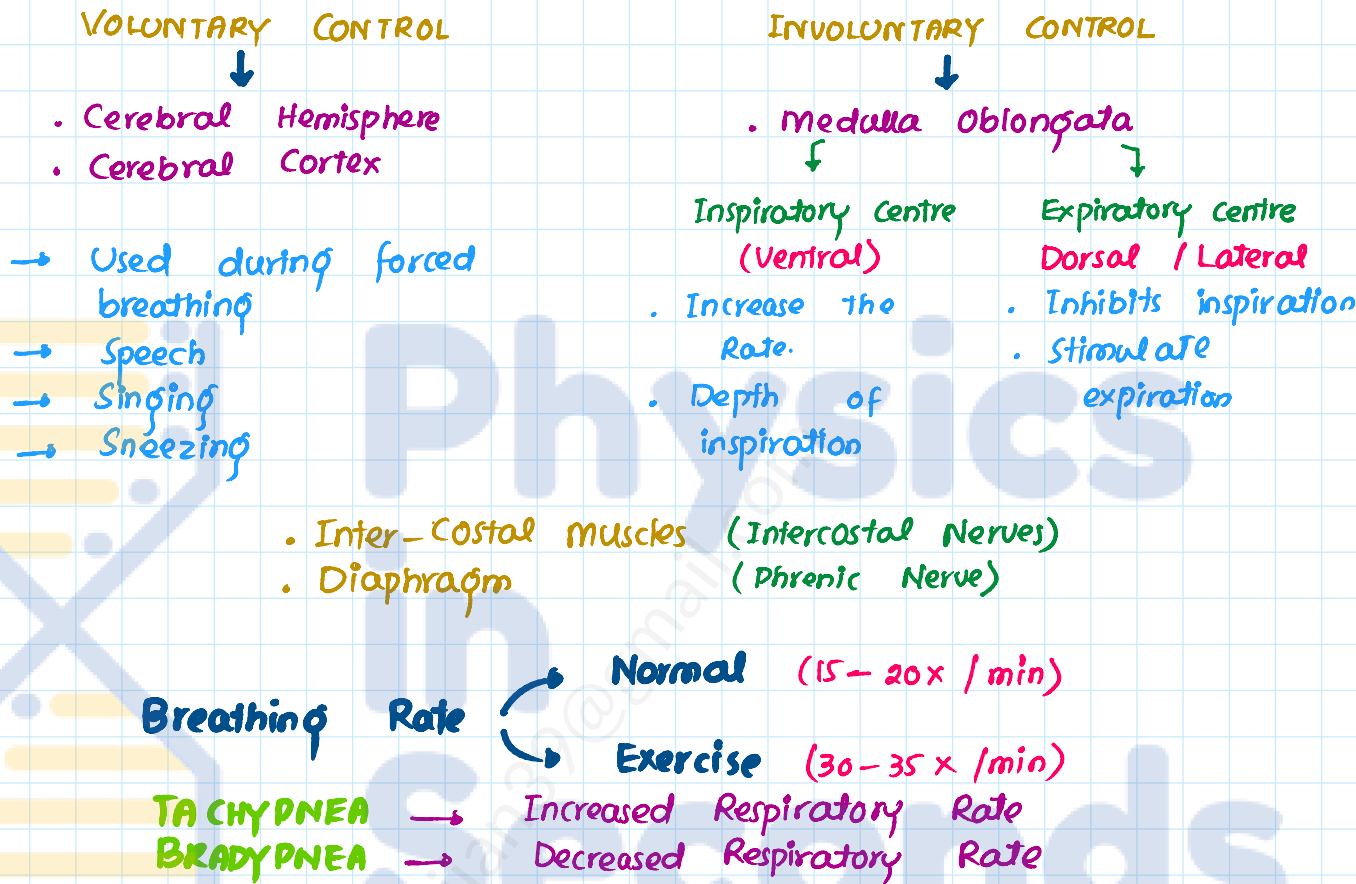 VOLUNTARY CONTROL
. Cerebral Hemisphere
. Cerebral Cortex
→ Used during forced
breathing
→ Speech
→ Singing
→ Sneezing
INVOLUNTARY CONTROL
. Medulla Oblongata
Inspiratory Centre
(Ventral)
. Increase the
Rate.
. Depth of
inspiration
Expiratory Centre
Dorsal / Lateral
. Inhibits inspiration
. Stimulate
expiration
. Inter-Costal muscles (Intercostal Nerves)
. Diaphragm (Phrenic Nerve)
Breathing Rate
Normal (15 - 20x / min)
Exercise (30 - 35 x /min)
TACHYPNEA → Increased Respiratory Rate
BRADYPNEA → Decreased Respiratory Rate
Physics
in
Seconds